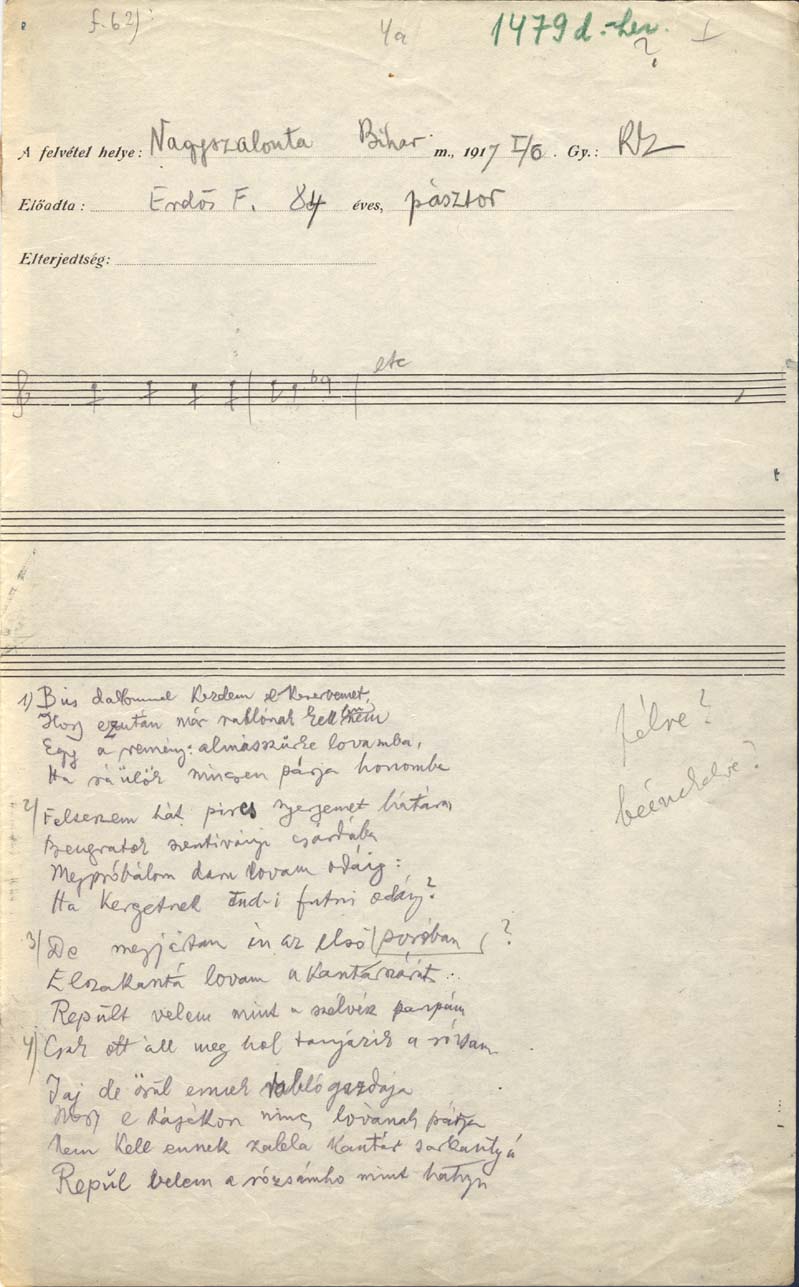 f. 62)
4a
1479 d.
?
I
A felvétel helye: Nagyszalonta Bihar m., 1917 I/6. Gy.:
Előadta: Erdős F. 84 éves, pásztor
Elterjedtség:
etc
1) Bús dalommal kezdem el keservemet,
Hogy ezután már rablónak kell
Egy a remény: almásszürke lovamba,
Ha ráülök nincsen párja honomba
félre?
2/ Felteszem hát piros nyergemet hátára
Beugratok szentiványi csárdába
Megpróbálom daru lovam odáig:
Ha kergetnek tud-i futni odáig?
3/ De megjártam én az első próbában ?
Elszakantá lovam a kantárszárát
Repült velem mint a szélvész
4/ Csak ott áll meg hol tanyázik a rózsám
Jaj de örül ennek rabló gazdája
Hogy e tájékon nincs lovának párja
Nem kell ennek zabla kantár sarkantyú
Repül velem a rózsámho mint hattyu